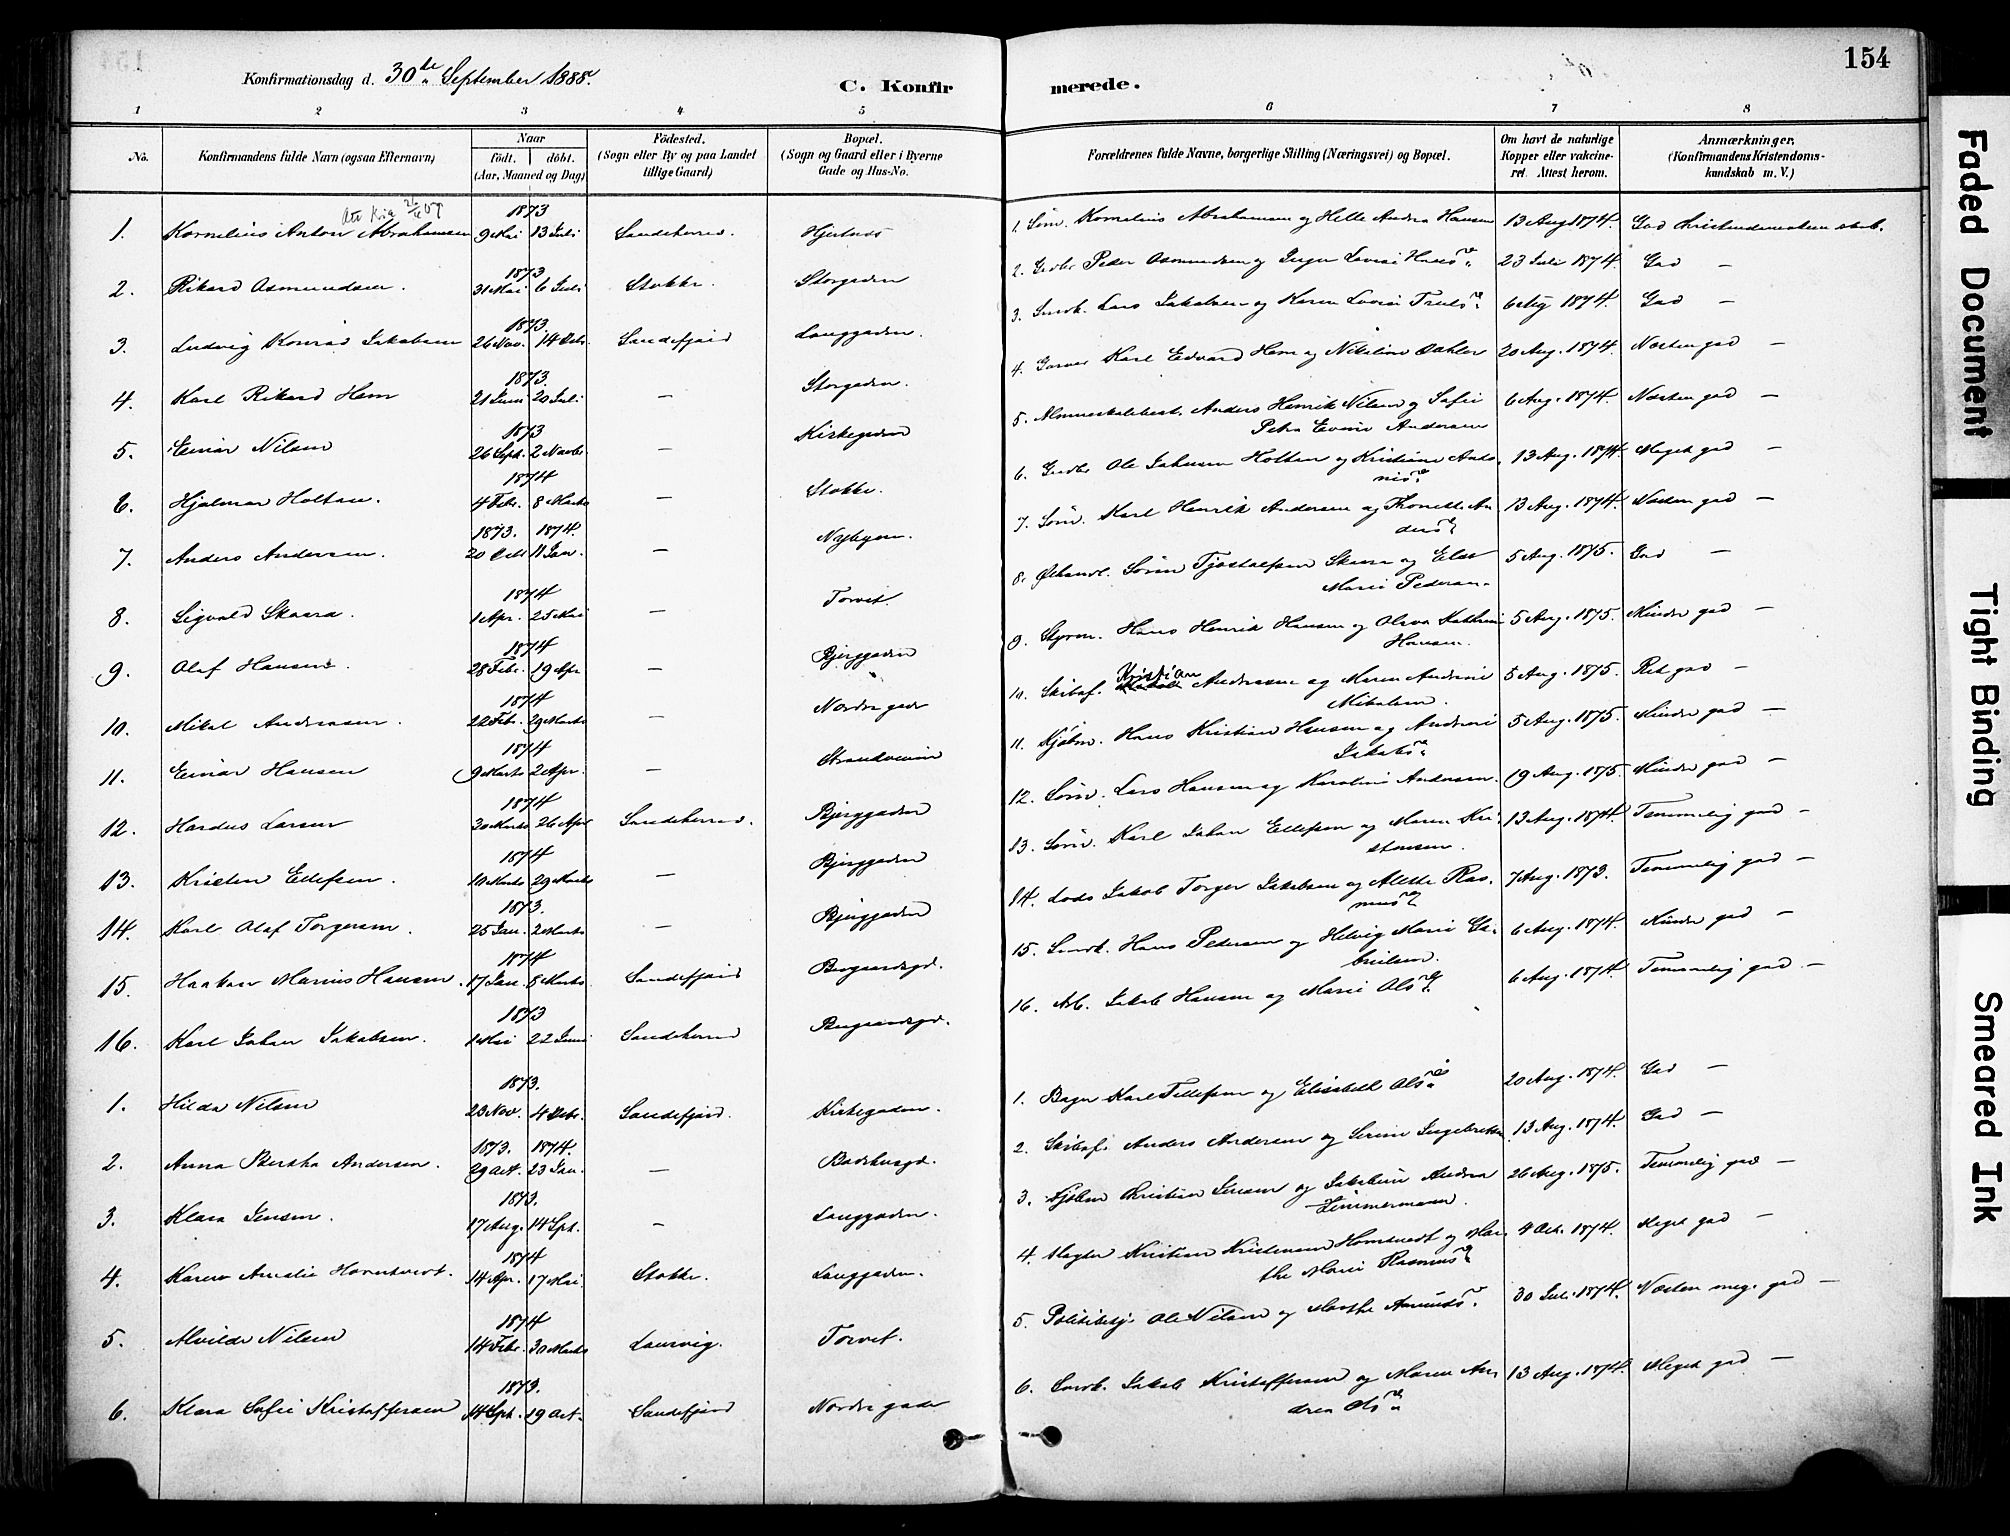 154
Konfirmationsdag d. 30de September 1888.
C. Konfirmerede.
1 2 3 4 5 6 7 8
No. Konfirmandens fulde Navn (ogsaa Efternavn) Naar födt. döbt. (Aar, Maaned og Dag) Födested. (Sogn eller By og paa Landet tillige Gaard) Bopæl. (Sogn og Gaard eller i Byerne Gade og Hus-No. Forældrenes fulde Navne, borgerlige Stilling (Næringsvei) og Bopæl. Om havt de naturlige Kopper eller vakcineret. Attest herom. Anmærkninger. (Konfirmandens Kristendomskundskab m. V.)
1. Kornelius Anton Abrahamsen 1873 9 Mai 13 Juli Sandeherred. Hjertnes 1. Söm. Kornelius Abrahamsen og Helle Andrea Hansen 13 Aug 1874. God Kristendomskundskab.
2. Rikard Asmundsen. 1873 31 Mai 6 Juli Stokke. Storgaden 2. Gudbr Peder Asmundsen og Inger Lovise Hansd. 23 Juli 1874. God —
3. Ludvig Konrad Jakobsen 1873. 26 Nov. 14 Debr. Sandefjord Langgaden. 3. Smedk. Lars Jakobsen og Karen Lovise Trulsd. 6 Aug 1874. God —
4. Karl Rikard Hem 1873. 21 Juni 20 Juli — Storgaden. 4. Garver Karl Edvard Hem og Nikoline Dahler 20 Aug. 1874. Næsten god —
5. Einar Nilsen 1873 26 Sept. 2 Novbr. — Kirkegaden 5. Almueskolebest. Anders Henrik Nilsen og Sofie Petra Evine Andersen 6 Aug. 1874. Næsten god —
6. Hjalmar Holtan. 1874 4 Febr. 8 Marts — Stokke. 6. Gudbr Ole Johnsen Holtan og Kristiane Antonisd. 13 Aug. 1874. Meget god —
7. Anders Andersen. 1873. 1874. 20 Oct 11 Jan. — Nybyen. 7. Söm. Karl Henrik Andersen og Thonette Andersd. 13 Aug. 1874. Næsten god —
8. Sigvald Skaara. 1874 1 Apr. 25 Mai — Torvet. 8. Ølhandl. Sörin Tjöstolfsen Skaara og Else Marie Pedersen. 5 Aug. 1875. God —
9. Olaf Hansen. 1874 28 Febr. 19 Apr — Bjerggaden 9. Styrm. Hans Henrik Hansen og Olava Kathrine Hansen. 5 Aug. 1875. Mindre god —
10. Mikal Andreasen. 1874 22 Febr. 29 Marts — Nordre gade 10. Skibsf. Kristian Andreasen og Maren Andrine Mikalsen. 5 Aug. 1875. Ret god —
11. Einar Hansen 1874 9 Marts 2 Apr. — Strandveien 11. Kjöbm. Hans Kristian Hansen og Andrine Jakobsd. 5 Aug. 1875. Mindre god —
12. Hardus Larsen 1874 30 Marts 26 Apr Sandeherred. Bjerggaden 12. Söm. Lars Hansen og Karoline Andersen. 19 Aug. 1875. Mindre god —
13. Kristen Ellefsen. 1874 10 Marts 29 Marts — Bjerggaden 13. Söm. Karl Johan Ellefsen og Maren Kristensen. 13 Aug. 1874. Temmelig god —
14. Karl Olaf Torgersen. 1873. 25 Jan. 2 Marts — Bjerggaden 14. Lods Jakob Torger Jakobsen og Alette Rasmusd 7 Aug. 1873. Temmelig god —
15. Haakon Marius Hansen. 1874 17 Jan. 8 Marts Sandefjord Bugaardsgd. 15. Smedk. Hans Pedersen og Helvig Marie Gabrielsen. 6 Aug. 1874. Mindre god —
16. Karl Johan Jakobsen. 1873 1 Mai 22 Juni Sandeherred Bugaardsgd. 16. Arb. Jakob Hansen og Marie Olsd. 6 Aug. 1874. Temmelig god. —
1. Hilda Nilsen 1873. 23 Nov. 4 Debr. Sandefjord. Kirkegaden. 1. Bager Karl Tellefsen og Elisabeth Olsd. 20 Aug. 1874. God —
2. Anna Bertha Andersen. 1873. 1874. 29 Oct. 23 Jan. — Badehusgd. 2. Skibsf. Anders Andersen og Serine Ingebretsen 13 Aug. 1874. God —
3. Klara Jensen. 1873. 17 Aug. 14 Spt. — Langgaden. 3. Kjöbm Kristian Jensen og Jakobine Andrea Zimmermann. 26 Aug. 1875. Temmelig god —
4. Karen Amalie Horntvedt. 1874 14 Apr. 17 Mai Stokke. Langgaden. 4. Slagter Kristian Kristensen Horntvedt og Marthe Marie Rasmusd 4 Oct. 1874. Meget god —
5. Alvilde Nilsen 1874 14 Febr. 30 Marts Laurvig. Torvet. 5. Politibetj. Ole Nilsen og Marthe Aamundsd. 30 Juli 1874. Næsten meg. god —
6. Klara Sofie Kristoffersen 1873. 14 Spt. 19 Oct. Sandefjord Nordre gade 6. Smedk. Jakob Kristoffersen og Maren Andrea Olsd. 13 Aug. 1874. Meget god —
Faded Document
Tight Binding
Smeared Ink